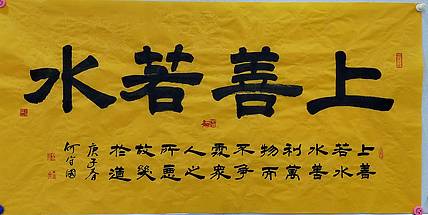 上善若水
上善
若水
水善
利萬
物而
不爭
處衆
人之
所惡
故幾
於道
庚子春
何守國